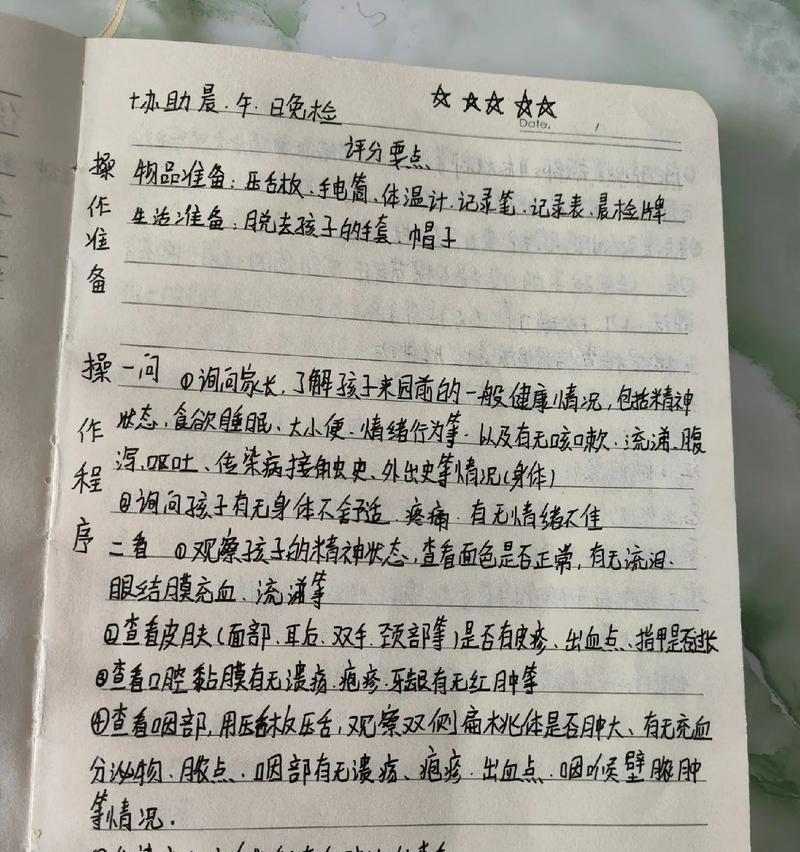 协助晨、午、晚检
Date.
评分要点
操作准备
物品准备：压舌板、手电筒、体温计、记录笔、记录表、晨检牌
生活准备：脱去孩子的手套、帽子
操作程序
一问 ①询问家长，了解孩子来园前的一般健康情况，包括精神
状态，食欲睡眠、大小便、情绪行为等、以及有无咳嗽、流涕、腹
泻、呕吐、传染病接触史、外出史等情况(身体)
②询问孩子有无身体不舒适、疼痛、有无情绪不佳
二看 ①观察孩子的精神状态，查看面色是否正常，有无流泪、
眼结膜充血、流涕等
②查看皮肤(面部、耳后、双手、颈部等)是否有皮疹、出血点、指甲是否
③查看口腔黏膜有无溃疡、疱疹、牙龈有无红肿等
④查看咽部，用压舌板压舌，观察双侧扁桃体是否肿大、有无充血
分泌物、脓点、咽部有无溃疡、疱疹、出血点、咽喉壁脓肿
等情况。